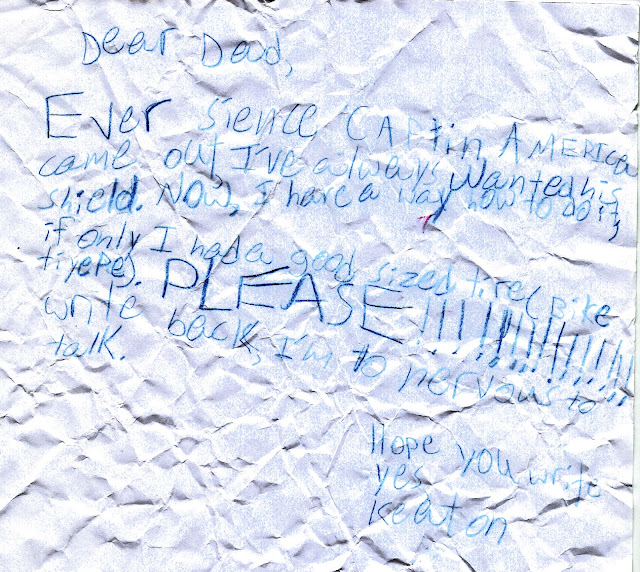 Dear Dad,
Ever sience CAPtin AMERICA
came out I've always Wanted his
shield. Now, I have a way how to do it,
if only I had a good sized tire( Bike
tipe).
PLEASE!!!!!!!!!!!!!!!
write back, I'm to nervous to
talk.
Hope you write
yes
Keaton